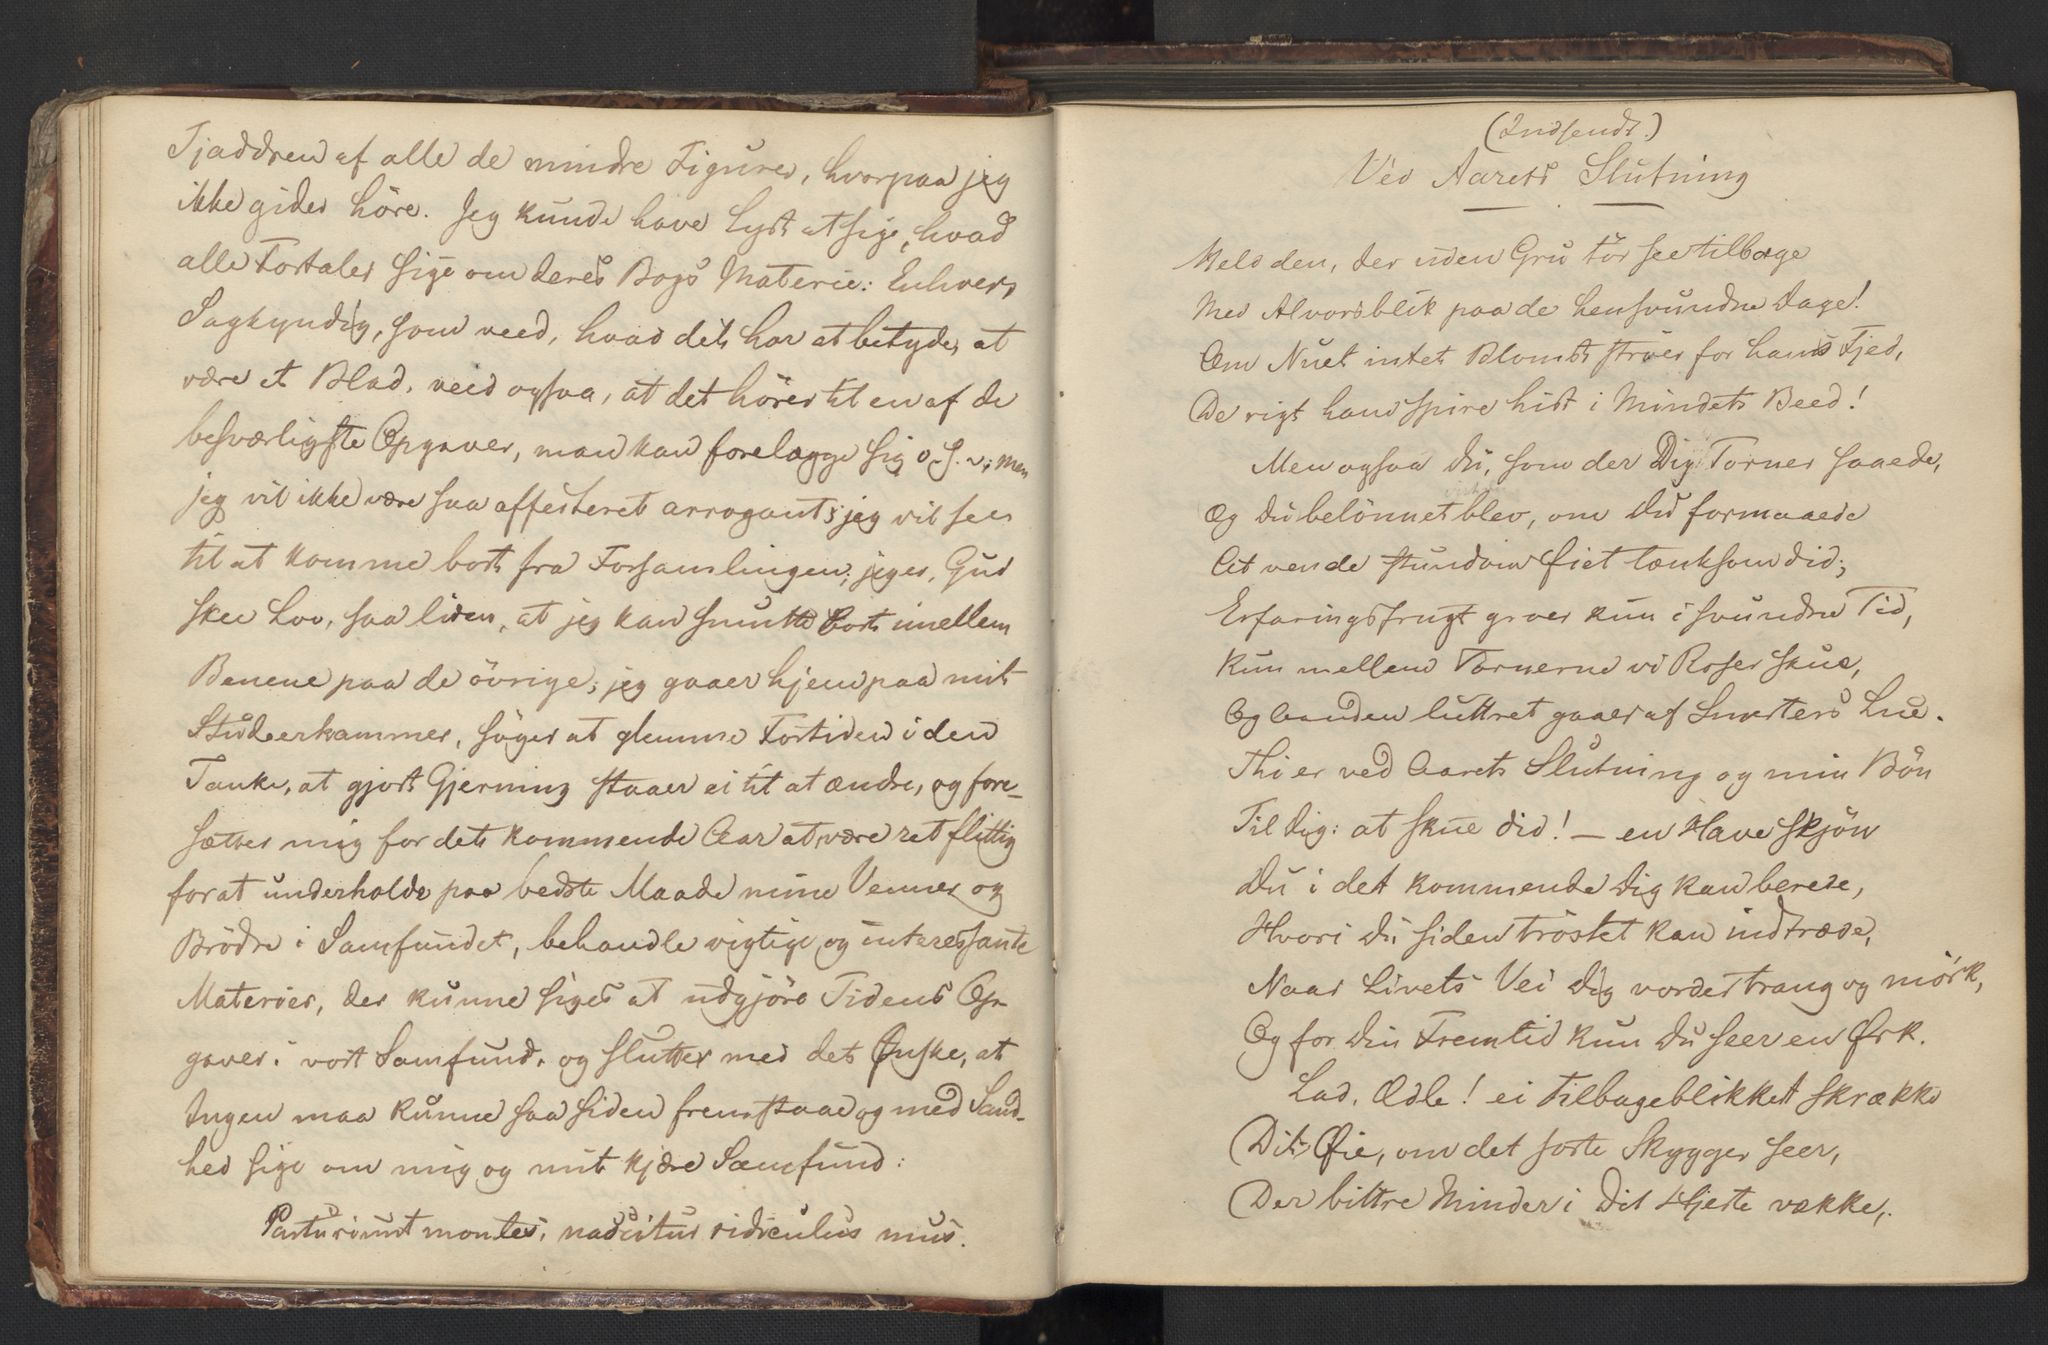 Tjaddren af alle de mindre Figurer, hvorpaa jeg
ikke gider höre. Jeg kunde have Lyst at sige, hvad
alle Fortaler sige om deres Bogs Materie: Enhver
Sagkyndig, som veed, hvad det har at betyde, at
være et Blad, veed ogsaa, at det hörer til en af de
besværligste Opgaver, man kan forelægge sig o. s. v; men
jeg vil ikke være saa affecteret arrogant; jeg vil see
til at komme bort fra Forsamlingen; jeg er, Gud
skee Lov, saa liden, at jeg kan smutte bort imellem
Benene paa de övrige; jeg gaaer hjem paa mit
Studeerkammer, söger at glemme Fortiden i den
Tanke, at gjort Gjerning staaer ei til at ændre, og fore-
sætter mig for det kommende Aar at være ret flittig
for at underholde paa bedste Maade mine Venner og
Brödre i Samfundet, behandle vigtige og interessante
Materier, der kunne siges at udgjöre Tidens Op-
gaver i vort Samfund, og slutter med det Ønske, at
Ingen maa kunne saa siden fremstaae og med Sand-
hed sige om mig og mit kjære Samfund:
Parturiunt montes, nascitur ridiculus mus.
(Indsendt.)
Ved Aarets Slutning
Held den, der uden Gru tör see tilbage
Med Alvorsblik paa de hensvundne Dage!
Om Nuet intet Blomst ströer for hans Fjed,
De rigt ham spire hist i Mindets Beed!
Men ogsaa Du, som der Dig Torner saaede,
Og Du belönnet blev, om Du formaaede
At vende stundom Øiet tænksom did;
Erfaringsfrugt groer kun i svundne Tid,
Kun mellem Tornerne vi Roser skue,
Og Aanden luttret gaaer af Smerters Lue.
Thi er ved Aarets Slutning og min Bön
Til Dig: at skue did! – en Have skjön
Du i det kommende Dig kan berede,
Hvori Du siden tröstet kan indtræde,
Naar Livets Vei Dig vorder trang og mörk,
Og for Din Fremtid kun Du seer en Ørk.
Lad, Ædle! ei Tilbageblikket skrække
Dit Øie, om det sorte Skygger seer,
Der bittre Minder i Dit Hjerte vække,